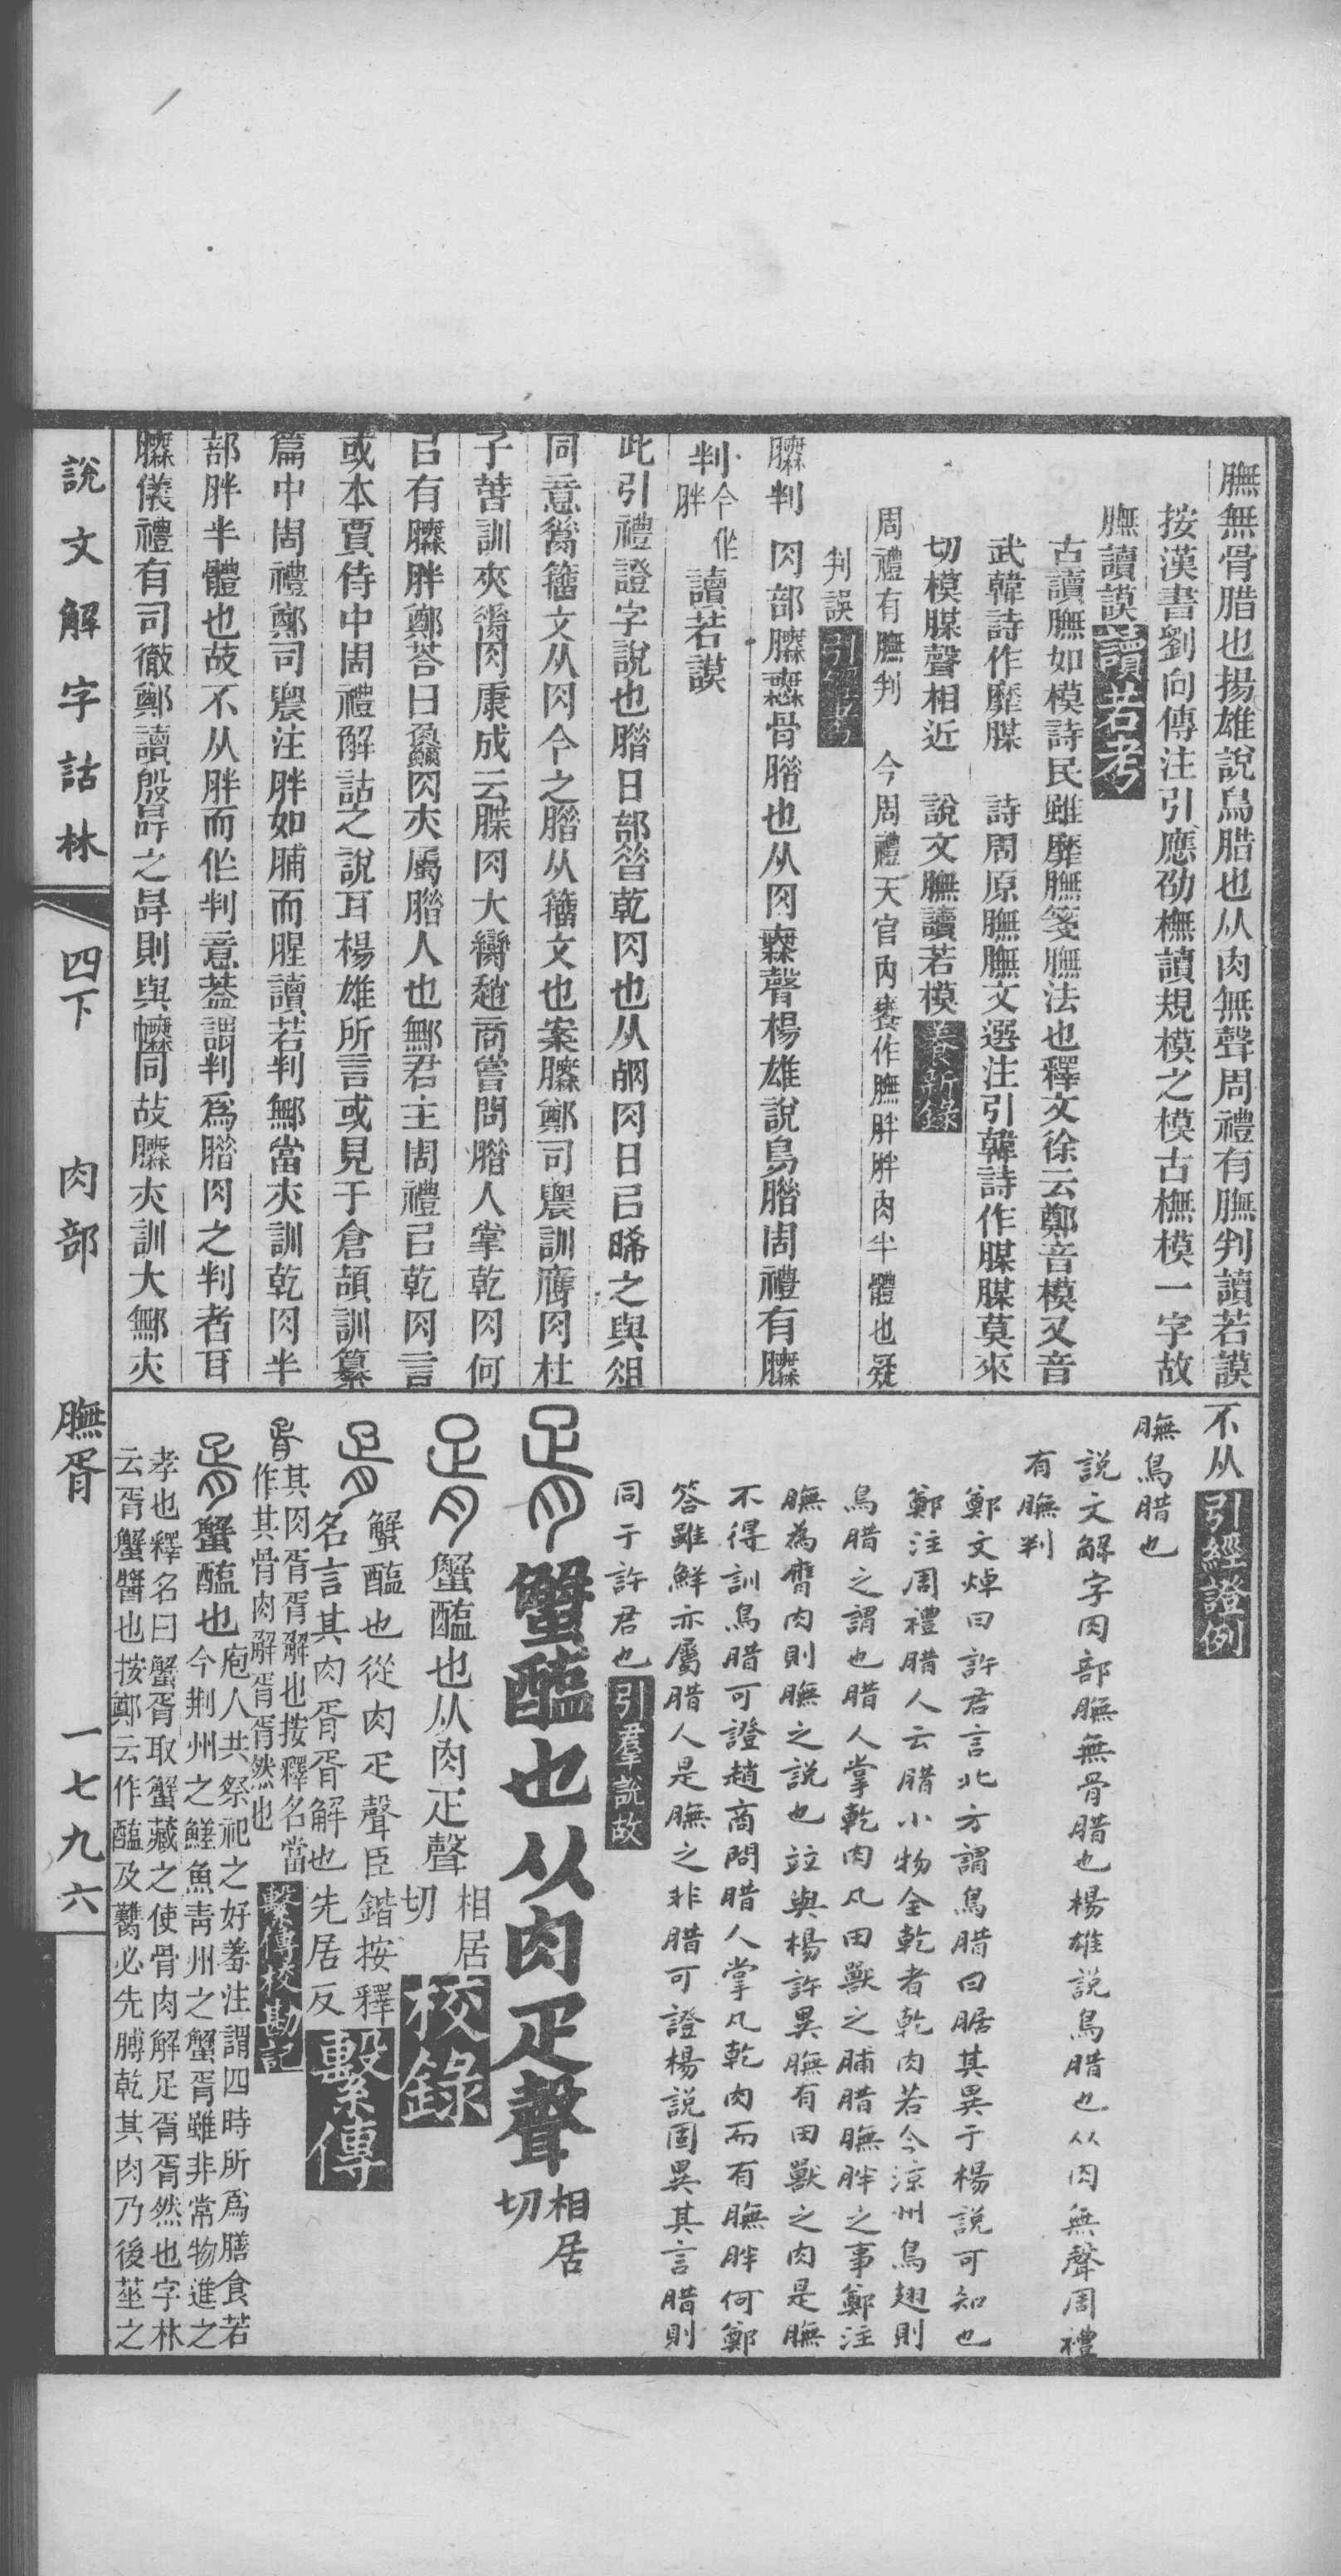 膴無骨腊也揚雄說鳥腊也从肉無聲周禮有膴判讀若謨
按漢書劉向傳注引應劭橅讀規模之模古橅模一字故
膴讀謨讀若考
古讀膴如模詩民雖靡膴箋膴法也釋文徐云鄭音模又音
武韓詩作靡腜　詩周原膴膴文選注引韓詩作腜腜莫來
切模腜聲相近　說文膴讀若模養新錄
周禮有膴判　今周禮天官內饔作膴胖胖肉半體也疑
判誤引經考
膴判　肉部膴無骨腊也从肉無聲楊雄說鳥腊周禮有膴
判今作胖讀若謨
此引禮證字說也腊日部昔乾肉也从殘肉日㠯晞之與俎
同意籀文从肉今之腊从籀文也案膴鄭司農訓膺肉杜
子萅訓夾脊肉康成云牒肉大臠趙商嘗問腊人掌乾肉何
㠯有膴胖鄭荅曰鱻肉亦屬腊人也鄦君主周禮㠯乾肉言
或本賈侍中周禮解詁之說耳楊雄所言或見于倉頡訓纂
篇中周禮鄭司農注胖如脯而腥讀若判鄦當亦訓乾肉半
部胖半體也故不从胖而作判意蓋謂判爲腊肉之判者耳
膴儀禮有司徹鄭讀殷冔之冔則與幠同故膴亦訓大鄦亦
不从引經證例
膴鳥腊也
說文解字肉部膴無骨腊也楊雄說鳥腊也从肉無聲周禮
有膴判
鄭文焯曰許君言北方謂鳥腊曰腒其異于楊說可知也
鄭注周禮腊人云腊小物全乾者乾肉若今涼州鳥翅則
鳥腊之謂也腊人掌乾肉凡田獸之脯腊膴胖之事鄭注
膴為膺肉則膴之說也竝與楊許異膴有田獸之肉是膴
不得訓鳥腊可證趙商問腊人掌凡乾肉而有膴胖何鄭
答雖鮮亦屬腊人是膴之非腊可證楊說固異其言腊則
同于許君也引羣說故
胥蟹醢也从肉疋聲相居切
胥蟹醢也从肉疋聲相居切校錄
胥蟹醢也從肉疋聲臣鍇按釋名言其肉胥胥解也先居反繫傳
胥其肉胥胥解也按釋名當作其骨肉解胥胥然也繫傳校勘記
胥蟹醢也庖人共祭祀之好羞注謂四時所爲膳食若今荆州之䱹魚青州之蟹胥雖非常物進之
孝也釋名曰蟹胥取蟹藏之使骨肉解足胥胥然也字林云胥蟹醬也按鄭云作醢及臡必先膊乾其肉乃後莝之
說文解字詁林　四下　肉部　膴胥　一七九六